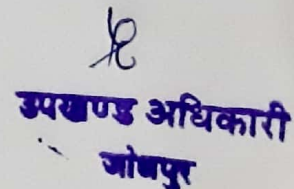 उपखण्ड अधिकारी
जोधपुर